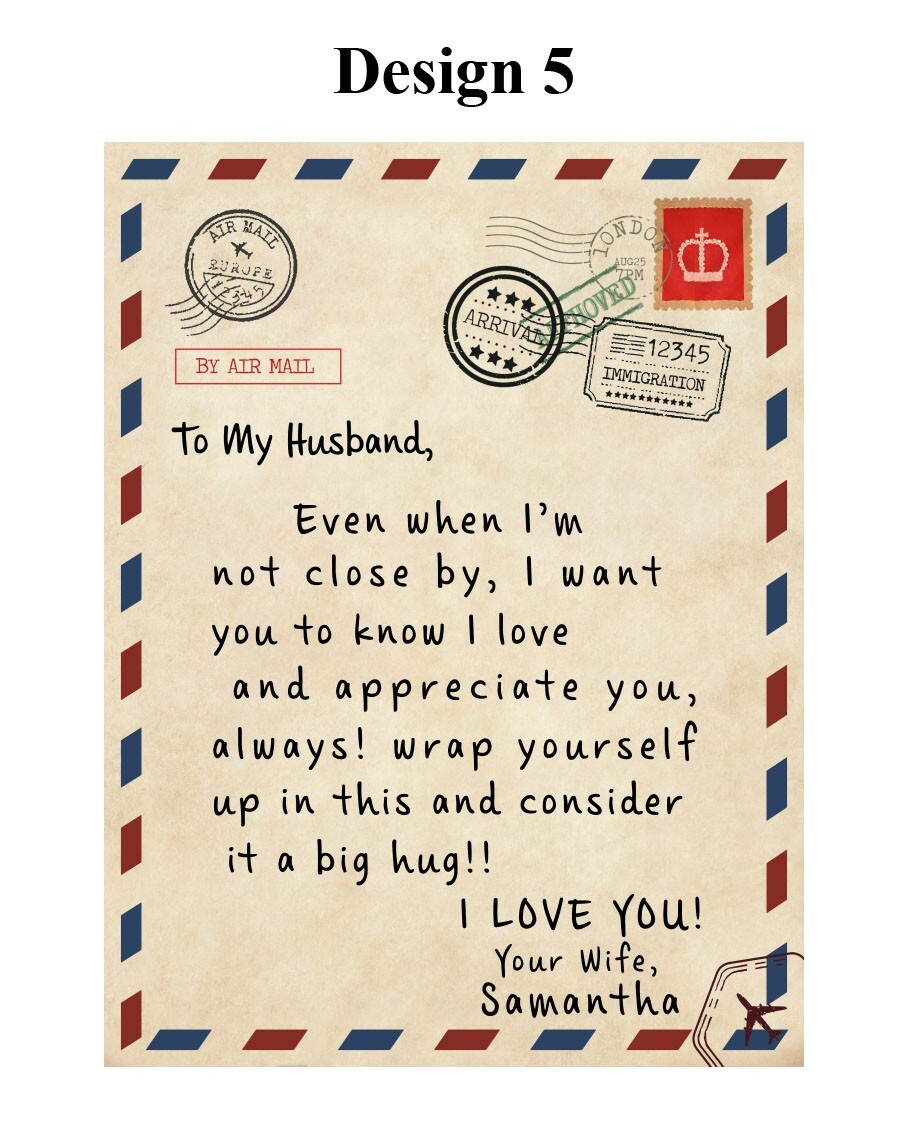 Design 5
AIR MAIL
EUROPE
12345
LONDON
AUG25
7PM
APPROVED
ARRIVAL
12345
IMMIGRATION
BY AIR MAIL
To My Husband,
Even when I'm
not close by, I want
you to know I love
and appreciate you,
always! wrap yourself
up in this and consider
it a big hug!!
I LOVE YOU!
Your Wife,
Samantha